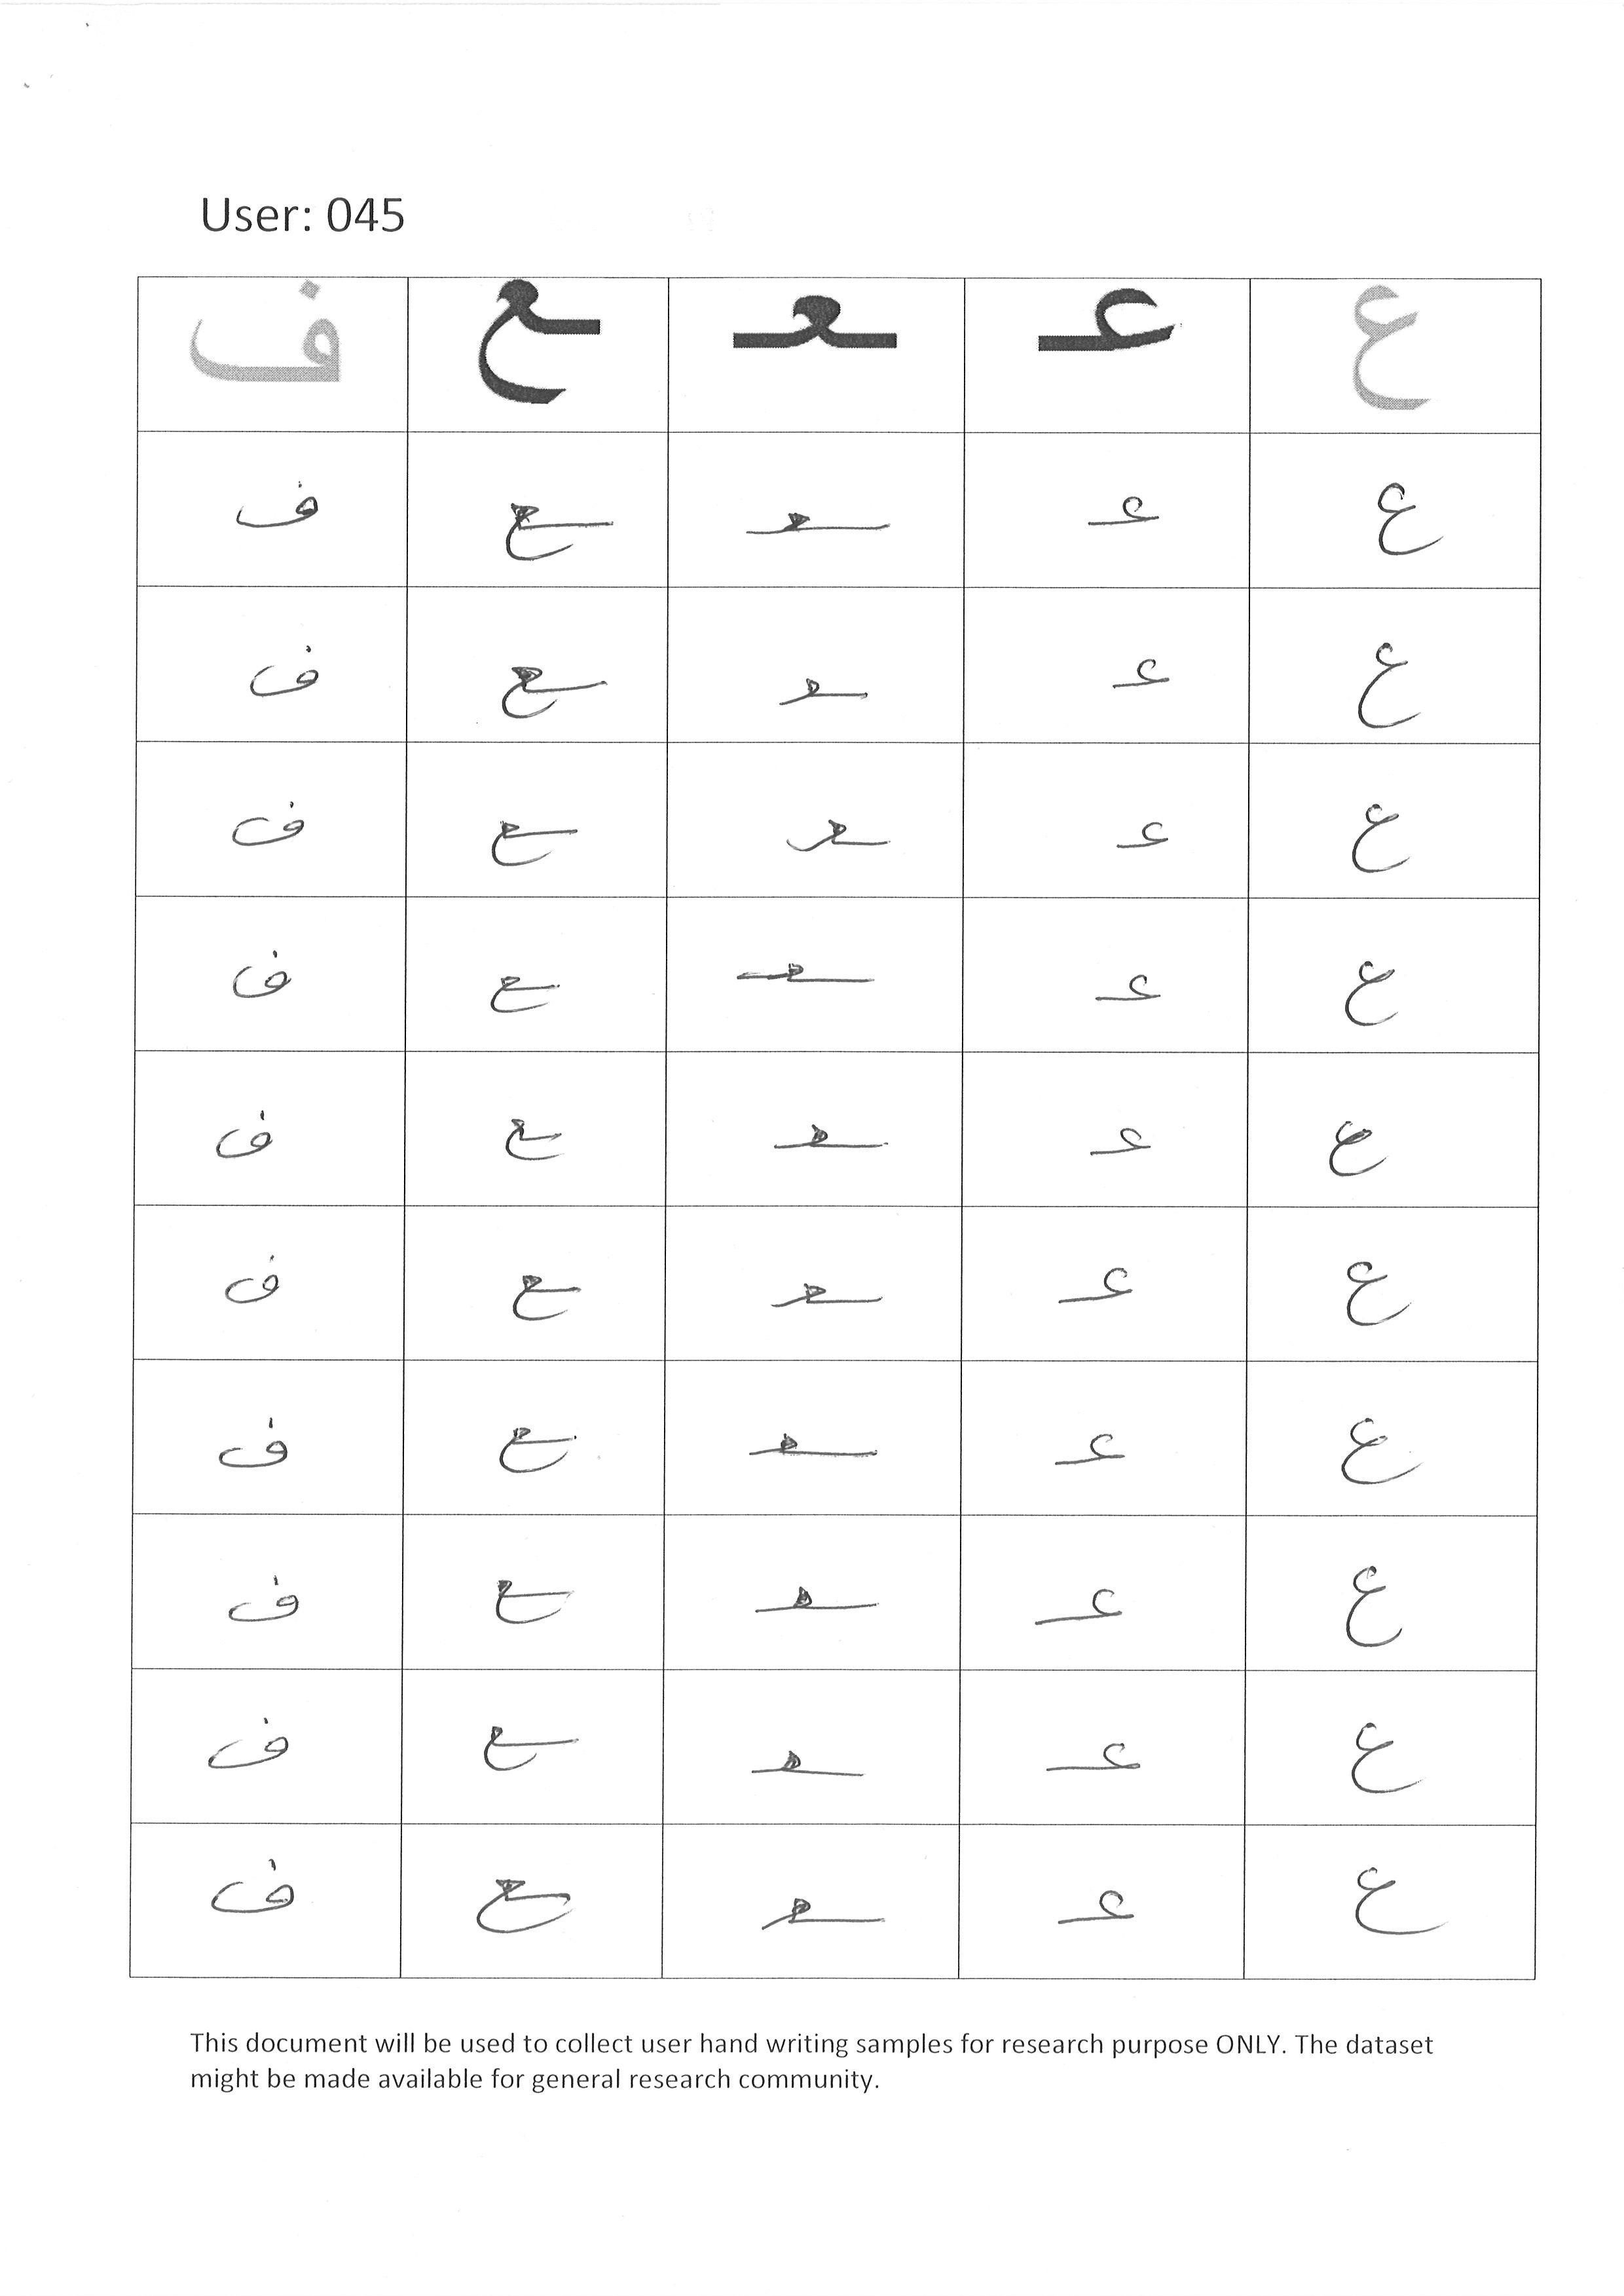 User: 045
ع عـ ـعـ ـع ف
ع عـ ـعـ ـع ف
ع عـ ـعـ ـع ف
ع عـ ـعـ ـع ف
ع عـ ـعـ ـع ف
ع عـ ـعـ ـع ف
ع عـ ـعـ ـع ف
ع عـ ـعـ ـع ف
ع عـ ـعـ ـع ف
ع عـ ـعـ ـع ف
ع عـ ـعـ ـع ف
This document will be used to collect user hand writing samples for research purpose ONLY. The dataset
might be made available for general research community.